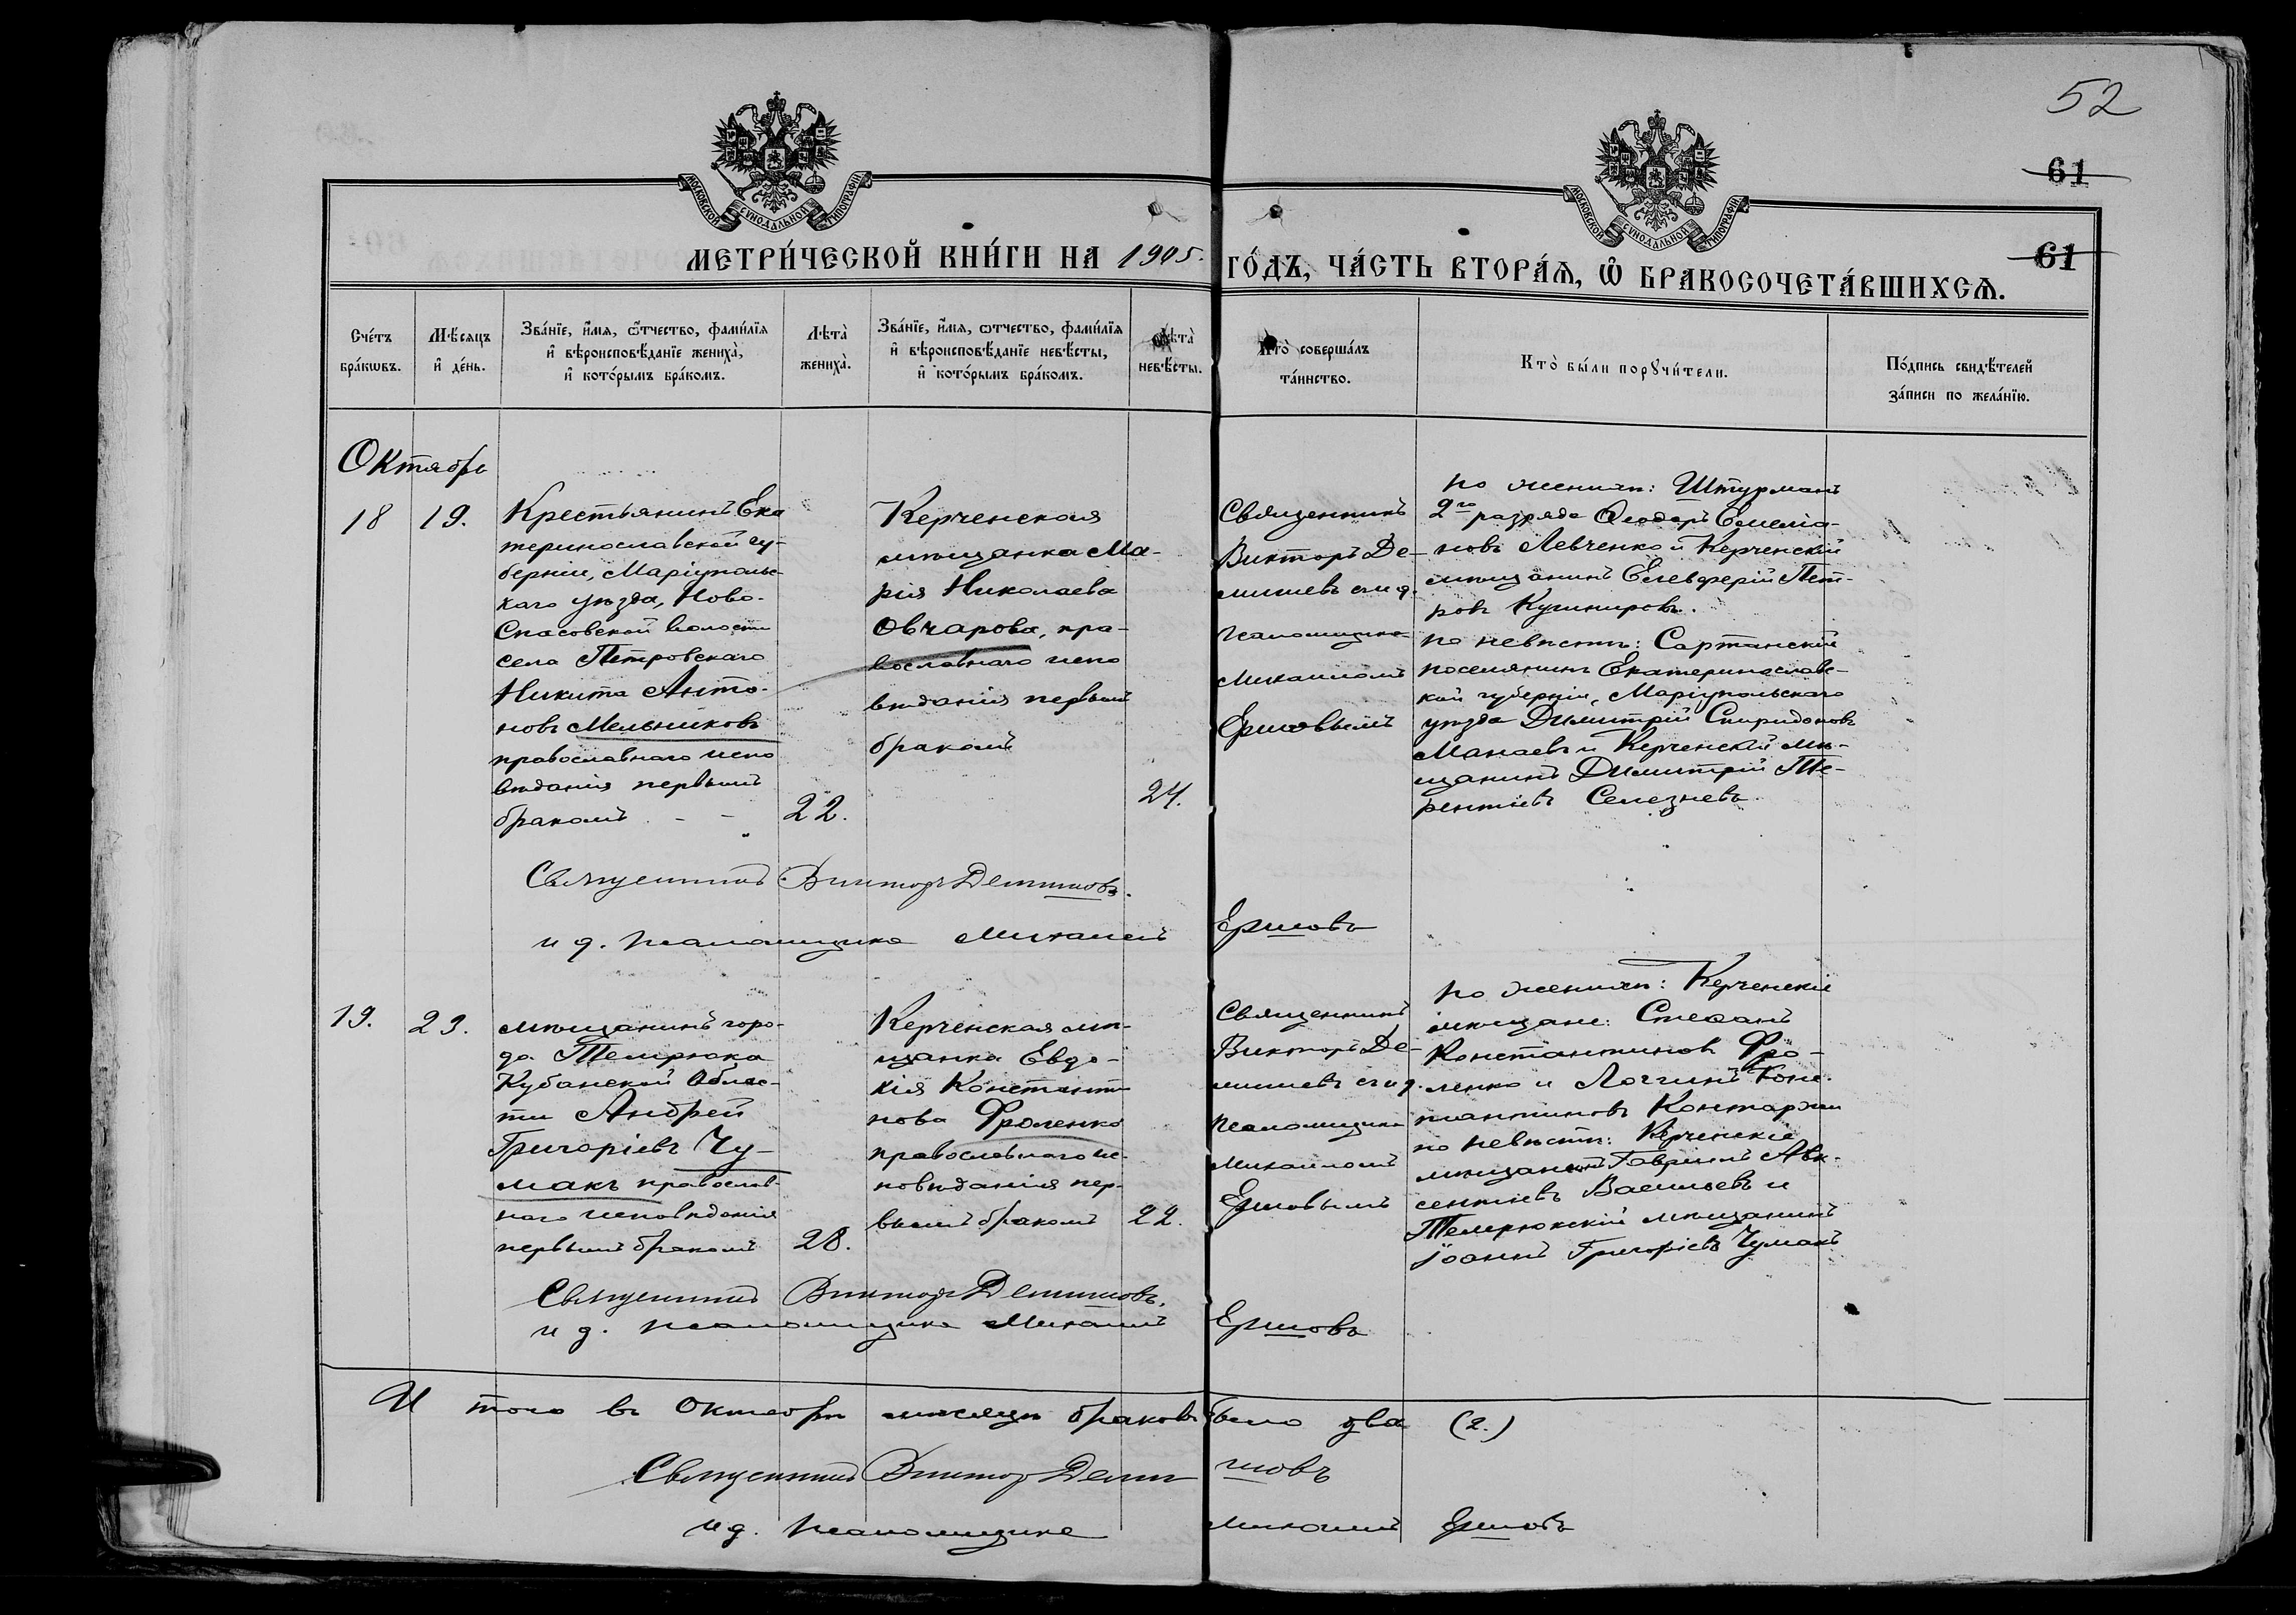 52
61
МОСКОВСКОЙ СУНОДАЛЬНОЙ ТИПОГРАФІИ
МОСКОВСКОЙ СУНОДАЛЬНОЙ ТИПОГРАФІИ
МЕТРИ́ЧЕСКОЙ КНИ́ГИ НА 1905. ГО́ДЪ, ЧА́СТЬ ВТОРА́Я, Ѡ҆ БРАКОСОЧЕТА́ВШИХСЯ.
61
Сче́тъ
бра́кωвъ.
Мѣ́сяцъ
и҆ де́нь.
Зва́нїе, и҆́мя, ѻ҆́тчество, фами́лїя
и҆ вѣроисповѣ́данїе жениха̀,
и҆ кото́рымъ бра́комъ.
Лѣта̀
жениха̀.
Зва́нїе, и҆́мя, ѻтчество, фами́лїя
и҆ вѣроисповѣ́данїе невѣ́сты,
и҆ кото́рымъ бра́комъ.
Лѣта̀
невѣ́сты.
Кто̀ соверша́лъ
та́инство.
Кто̀ бы́ли порꙋчи́тели.
По́дпись свидѣ́телей
за́писи по жела́нїю.
Октябрь
18
19.
Крестьянинъ Ека
теринославской гу-
берніи, Маріупольс-
каго уѣзда, Ново-
Спасовской волости
села Петровскаго
Никита Анто-
новъ Мельниковъ
православнаго испо
вѣданія первымъ
бракомъ - -
22.
Керченская
мѣщанка Ма-
рія Николаева
Овчарова, пра-
вославнаго испо
вѣданія первымъ
бракомъ
24.
Священникъ
Викторъ Де-
мишевъ с и д.
псаломщика
Михаиломъ
Ершовымъ
по женихѣ: Штурманъ
2го разряда Ѳеодоръ Емеліа-
новъ Левченко и Керченскій
мѣщанинъ Елевферій Пет-
ровъ Кушнировъ.
по невѣстѣ: Сартанскій
поселянинъ Екатеринославс-
кой губерніи, Маріупольскаго
уѣзда Димитрій Спиридоновъ
Манаевъ и Керченскій мѣ-
щанинъ Димитрій Те-
рентіевъ Селезневъ.
Священникъ Викторъ Демишевъ.
и д. псаломщика Михаилъ Ершовъ
19.
23.
мѣщанинъ горо-
да Темрюка
Кубанской Облас-
ти Андрей
Григоріевъ Чу-
макъ православ-
наго исповѣданія
первымъ бракомъ
28.
Керченская мѣ-
щанка Евдо-
кія Константи
нова Фроленко
православнаго ис-
повѣданія пер-
вымъ бракомъ
22.
Священникъ
Викторъ Де-
мишевъ с и д.
псаломщика
Михаиломъ
Ершовымъ
по женихѣ: Керченскіе
мѣщане: Стефанъ
Константиновъ Фро-
ленко и Логгинъ Конс-
тантиновъ Контаржи
по невѣстѣ: Керченскіе
Гавріилъ Авк-
сентіевъ Васильевъ и
Темрюкскій мѣщанинъ
Іоаннъ Григоріевъ Чумакъ
Священникъ Викторъ Демишевъ.
и д. псаломщика Михаилъ Ершовъ
И того въ Октябрѣ мѣсяцѣ браковъ было два (2.)
Священникъ Викторъ Демишевъ
и д. псаломщика Михаилъ Ершовъ